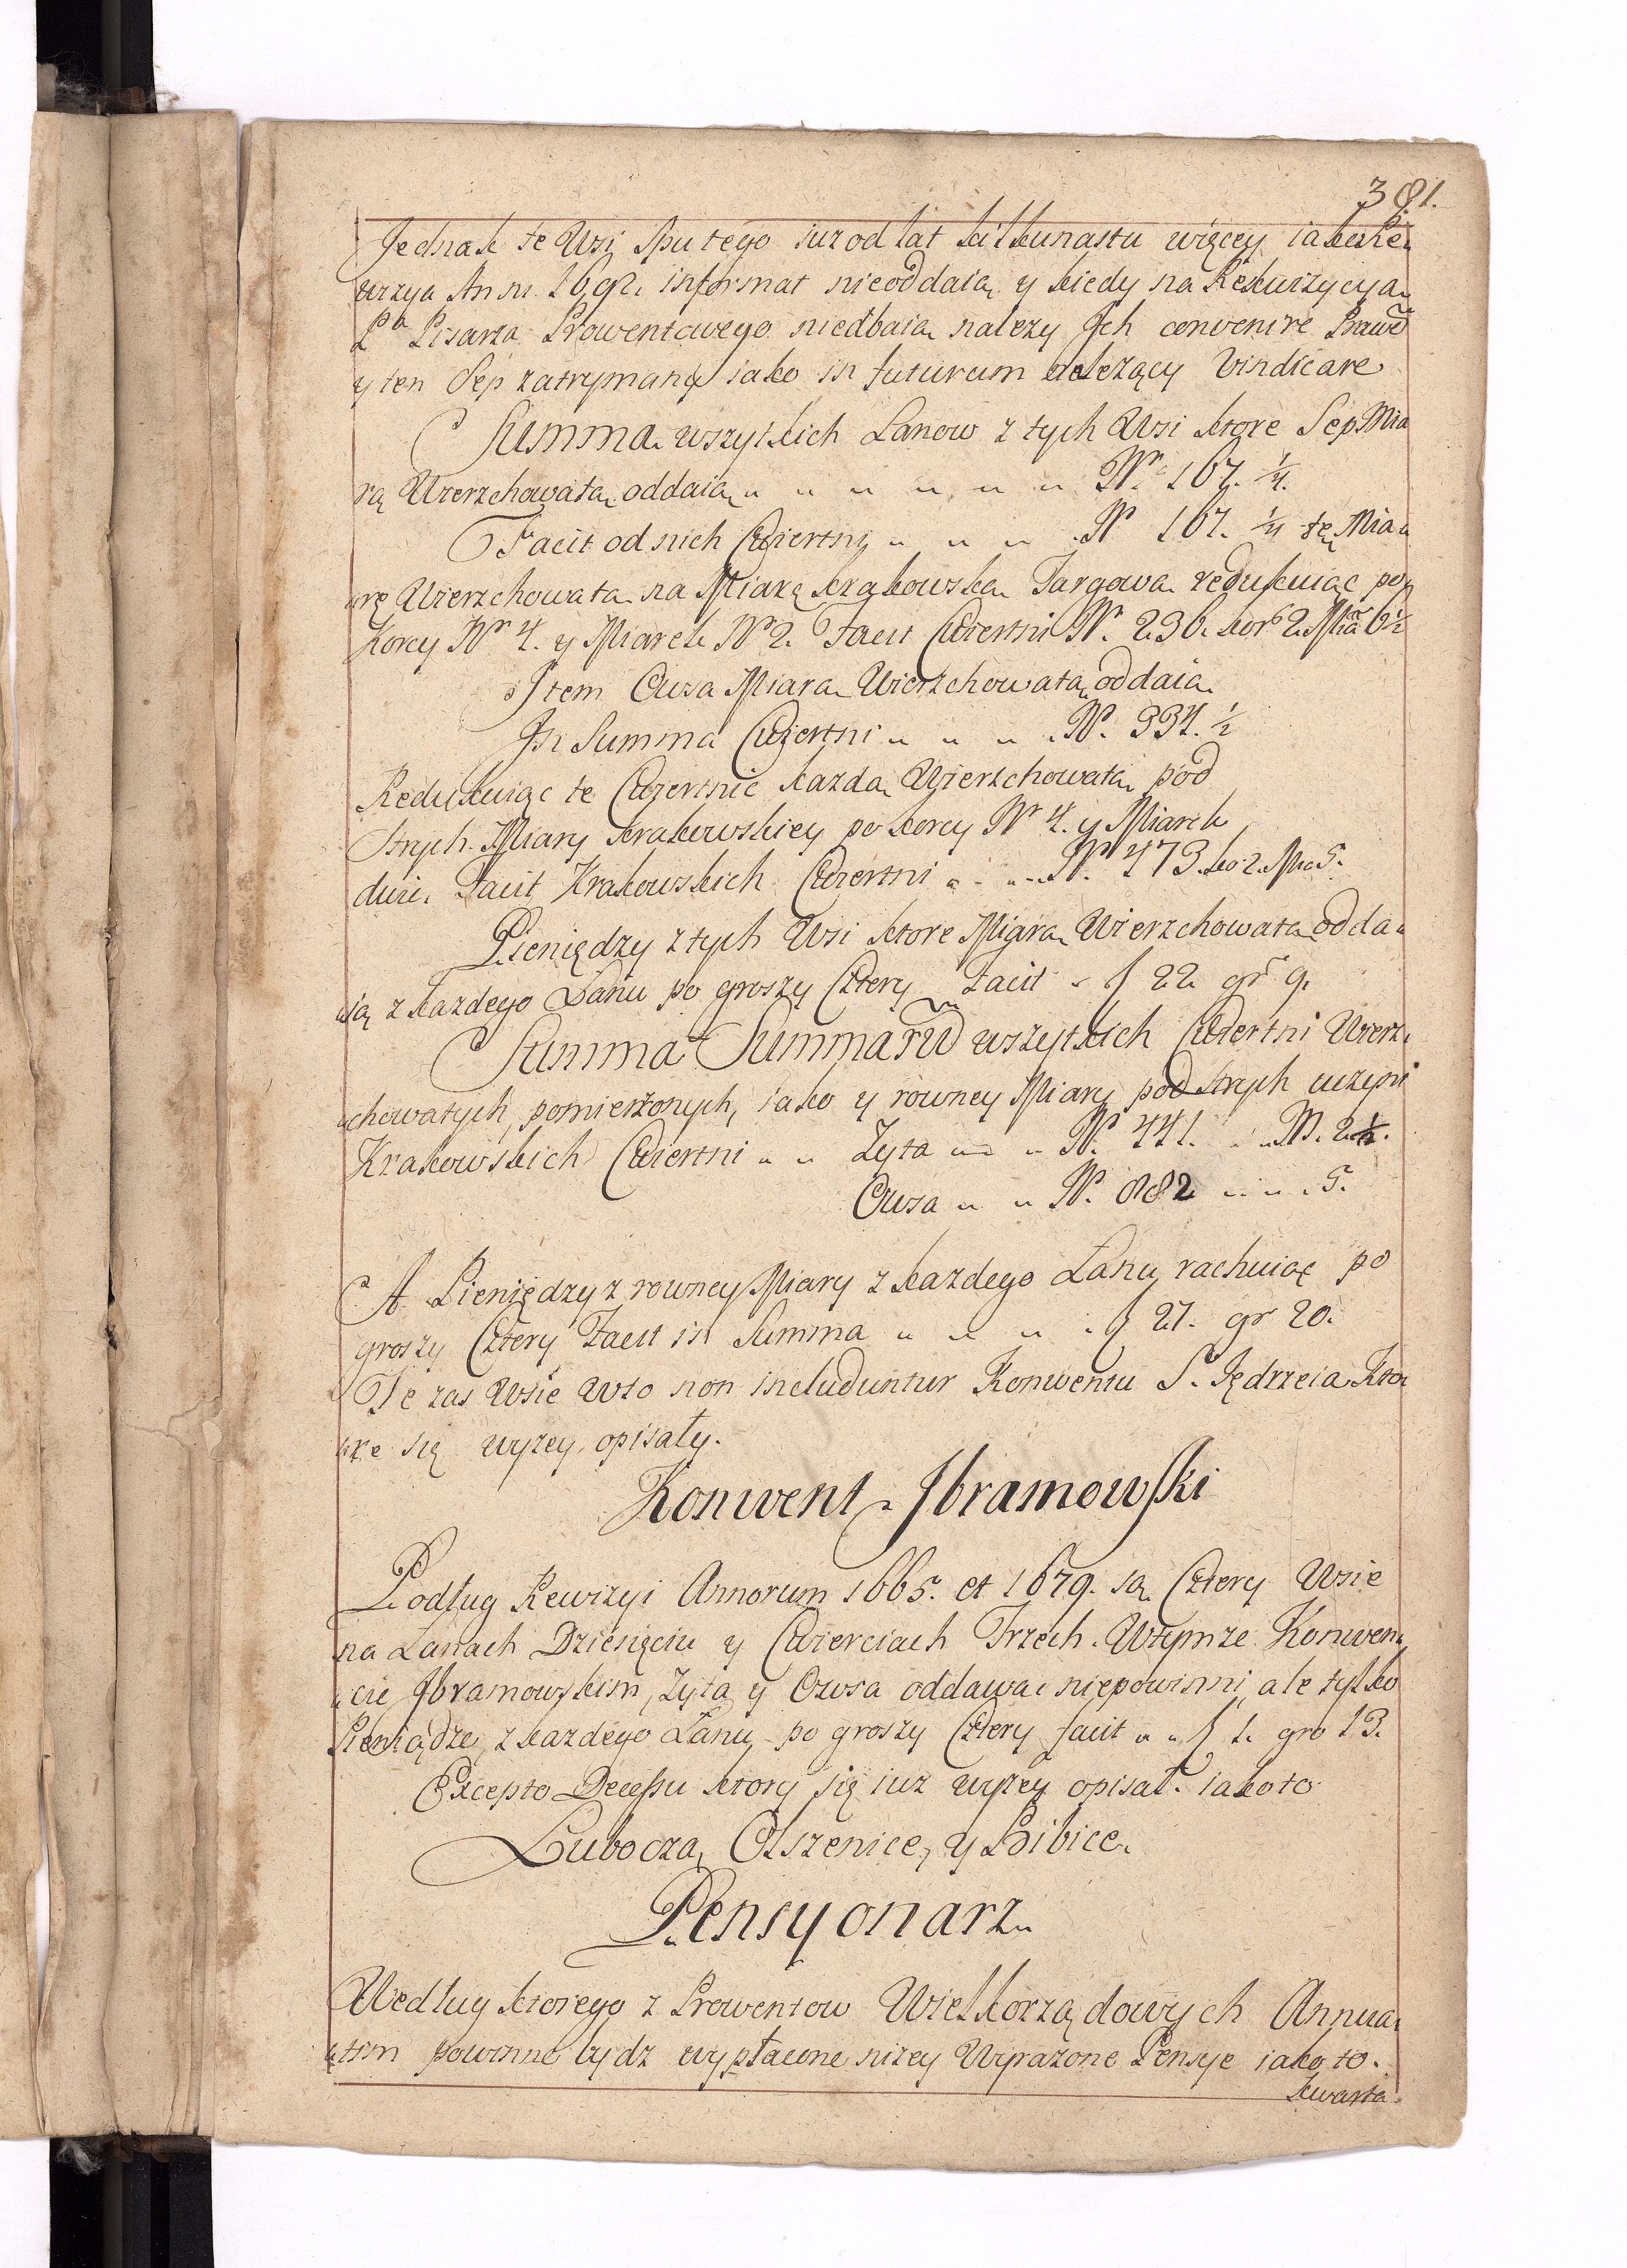 381.
Jednak te Wsi Sputego iuz od lat kilkunastu więcey iako Re-
wizya Anni 1692. informat nieoddaią y kiedy na Rekwizycyą
Pa Pisarza Prowentowego niedbaią nalezy Ich convenire Prawē
y ten Sep zatrzymany iako in futurum nalezący Vindicare
Summa wszytkich Łanow z tych Wsi ktore Sep Mia
rą Wierzchowatą oddaią Nro 167. 1/4.
Facit od nich Cwiertni N 167. 1/4 tę Mia-
rę Wierzchowatą na Miarę krakowską Targową redukuiąc po
Korcy Nr 4. y Miarek Nr 2. Facit Cwiertni Nr. 236. kor 2. Miar 6 1/2
Item Owsa Miarą Wierzchowatą oddaią
In Summa Cwiertni N. 334. 1/2
Redukuiąc te Cwiertnie kazdą Wierzchowatą pod
Strych Miary krakowskiey po korcy Nr 4. y Miarek
dwie. Facit Krakowskich Cwiertni N. 473. ko 2. Mia 5.
Pieniędzy z tych Wsi ktore Miarą Wierzchowatą odda-
ią z kazdego Łanu po groszy Cztery Facit f 22 gr 9.
Summa Summarū wszytkich Cwiertni Wierz-
chowatych, pomierzonych, iako y rowney Miary pod Strych uczyni
Krakowskich Cwiertni Zyta N. 441. M. 2 1/2.
Owsa N. 882 5.
A Pieniędzy z rowney Miary z kazdego Łanu rachuiąc po
groszy Cztery Facit in Summa f 27. gr 20.
Te zas Wsie w to non includuntur Konwentu S. Jędrzeia Kto-
re się wyzey opisały.
Konwent Jbramowski
Podług Rewizyi Annorum 1665. et 1679. są Cztery Wsie
na Łanach Dziesięciu y Cwierciach Trzech. W tymze Konwen-
cie Jbramowskim, Zyta y Owsa oddawac niepowinni, ale tylko
Pieniądze, z kazdego Łanu po groszy Cztery facit f 1. gro 13.
Excepto Decessu ktory się iuz wyzey opisał. iako to
Lubocza, Olszenice, y Bibice.
Pensyonarz
Według ktorego z Prowentow Wielkorządowych Annua-
tim powinne bydz wypłacone nizey Wyrazone Pensye iako to.
kwarta